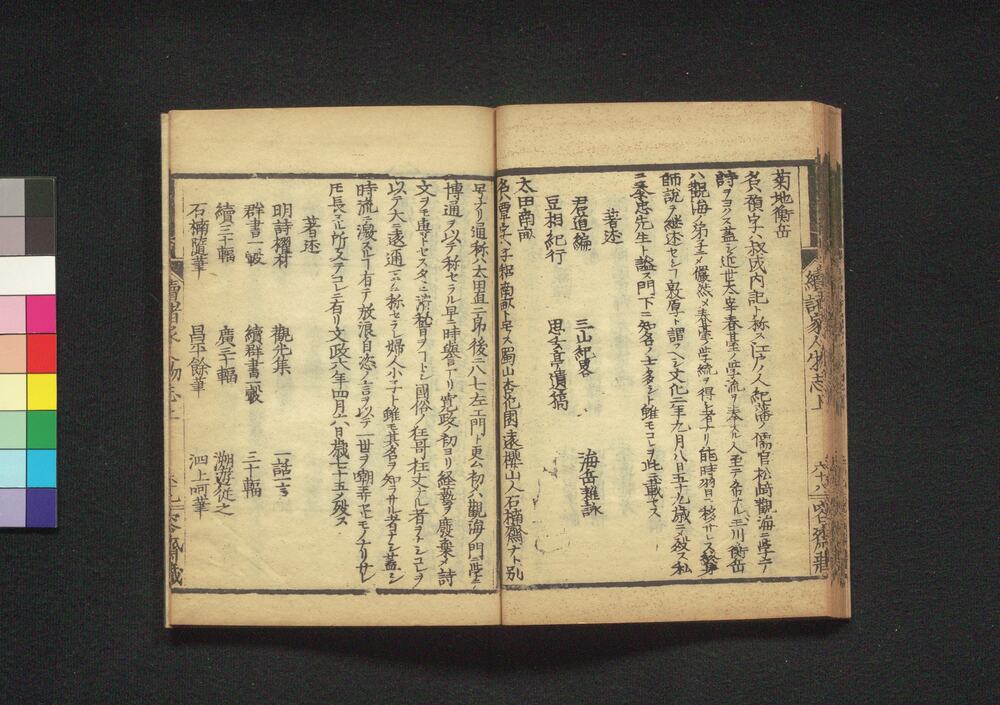 續諸家人物志上
菊地衡岳
名ハ禎字ハ叔成内記ト称ス江戸ノ人紀藩ノ儒官松崎觀海ニ學テ
詩ヲヨクス蓋シ近世太宰春基ノ學流ヲ奉スル人至テ希ナルニ川衡岳
ハ觀海ノ弟子ニメ儼然メ春基ノ學統ヲ得シ者ナリ能時習日ニ移サレス
師說ヲ継述セシヿ敦厚ト謂フヘシ文化二年九月八日五十九歳ニテ歿ス私
ニ季忠先生ト諡ス門下ニ知名ノ士多シト雖モコレヲ此ニ載セス
著述
君道編 三山紀畧 海岳雜詠
豆相紀行 思玄亭遺稿
太田南畝
名ハ覃字ハ子耜南畝ト号ス蜀山人杏花園遠櫻山人石楠齋ナト別
号ナリ通称ハ太田直二郎後ニハ七左エ門ト更ム初ハ觀海ノ門ニ學ヒ
博通ヲ以テ称セラル早ニ時譽アリ寛政ノ初ヨリ経藝ヲ廢棄メ詩
文ヲモ專トセスタヽニ滑稽ヲヿトシ國俗ノ狂哥狂文ナル者ヲトシコレヲ
以テ大ニ遠通ニ称セラレ婦人小子ト雖モ其名ヲ知ラサル者ナシ蓋シ
時流ニ激スルヿ有テ放浪自恣ノ言ヲ以テ一世ヲ嘲弄セシモノナリサレ
𪜈長スル所ステコレニ有リ文政六年四月六日歳七十五ニテ歿ス
著述
明詩擢材 觀光集 一話一言
群書一彀 續群書一彀 三十輻
續三十輻 廣三十輻 溯游從之
石楠隨筆 昌平餘筆 泗上呵筆
續諸家人物志上